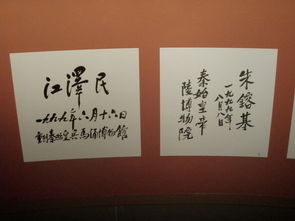 江澤民
一九九九年六月十六日
秦始皇兵馬俑博物館
朱鎔基
一九九九年
八月八日
秦始皇帝
陵博物院